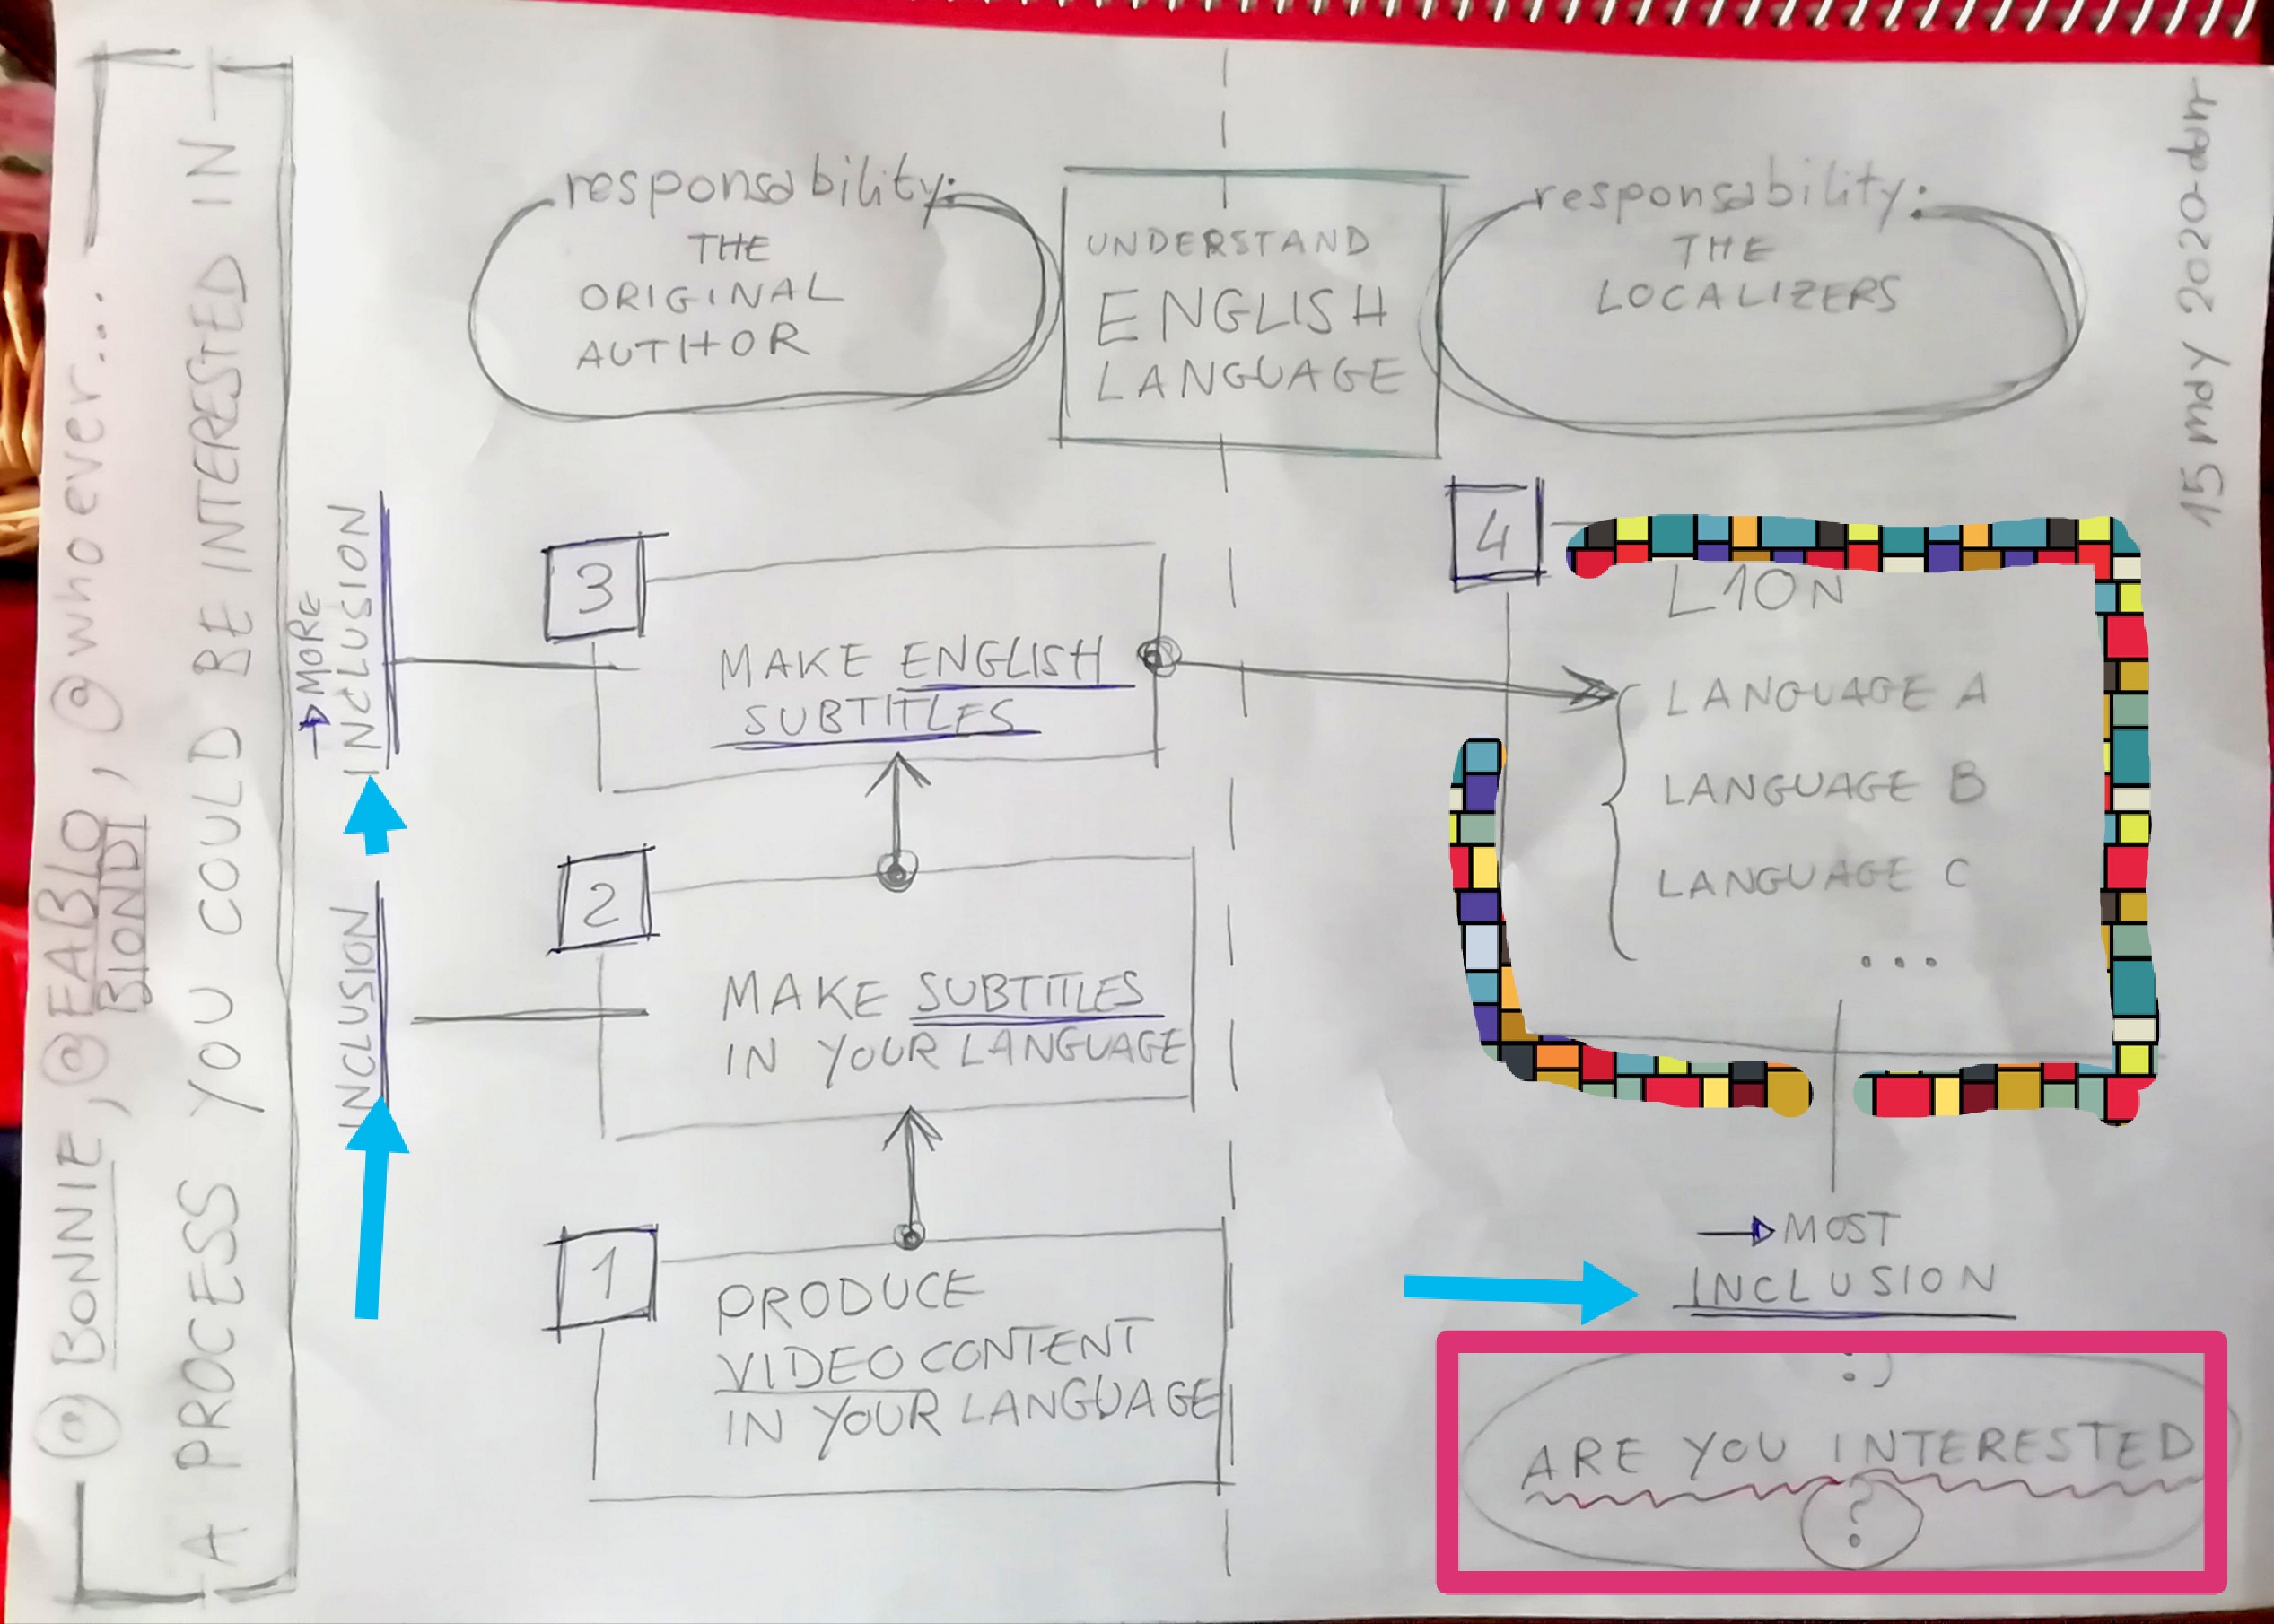 @BONNIE, @FABLO
BIONDI, @who ever...
A PROCESS YOU COULD BE INTERESTED IN
responsability:
THE
ORIGINAL
AUTHOR
UNDERSTAND
ENGLISH
LANGUAGE
responsability:
THE
LOCALIZERS
15 may 2020-dam
MORE
INCLUSION
3
MAKE ENGLISH
SUBTITLES
INCLUSION
2
MAKE SUBTITLES
IN YOUR LANGUAGE
1
PRODUCE
VIDEO CONTENT
IN YOUR LANGUAGE
4
L10N
LANGUAGE A
LANGUAGE B
LANGUAGE C
...
MOST
INCLUSION
:)
ARE YOU INTERESTED
?